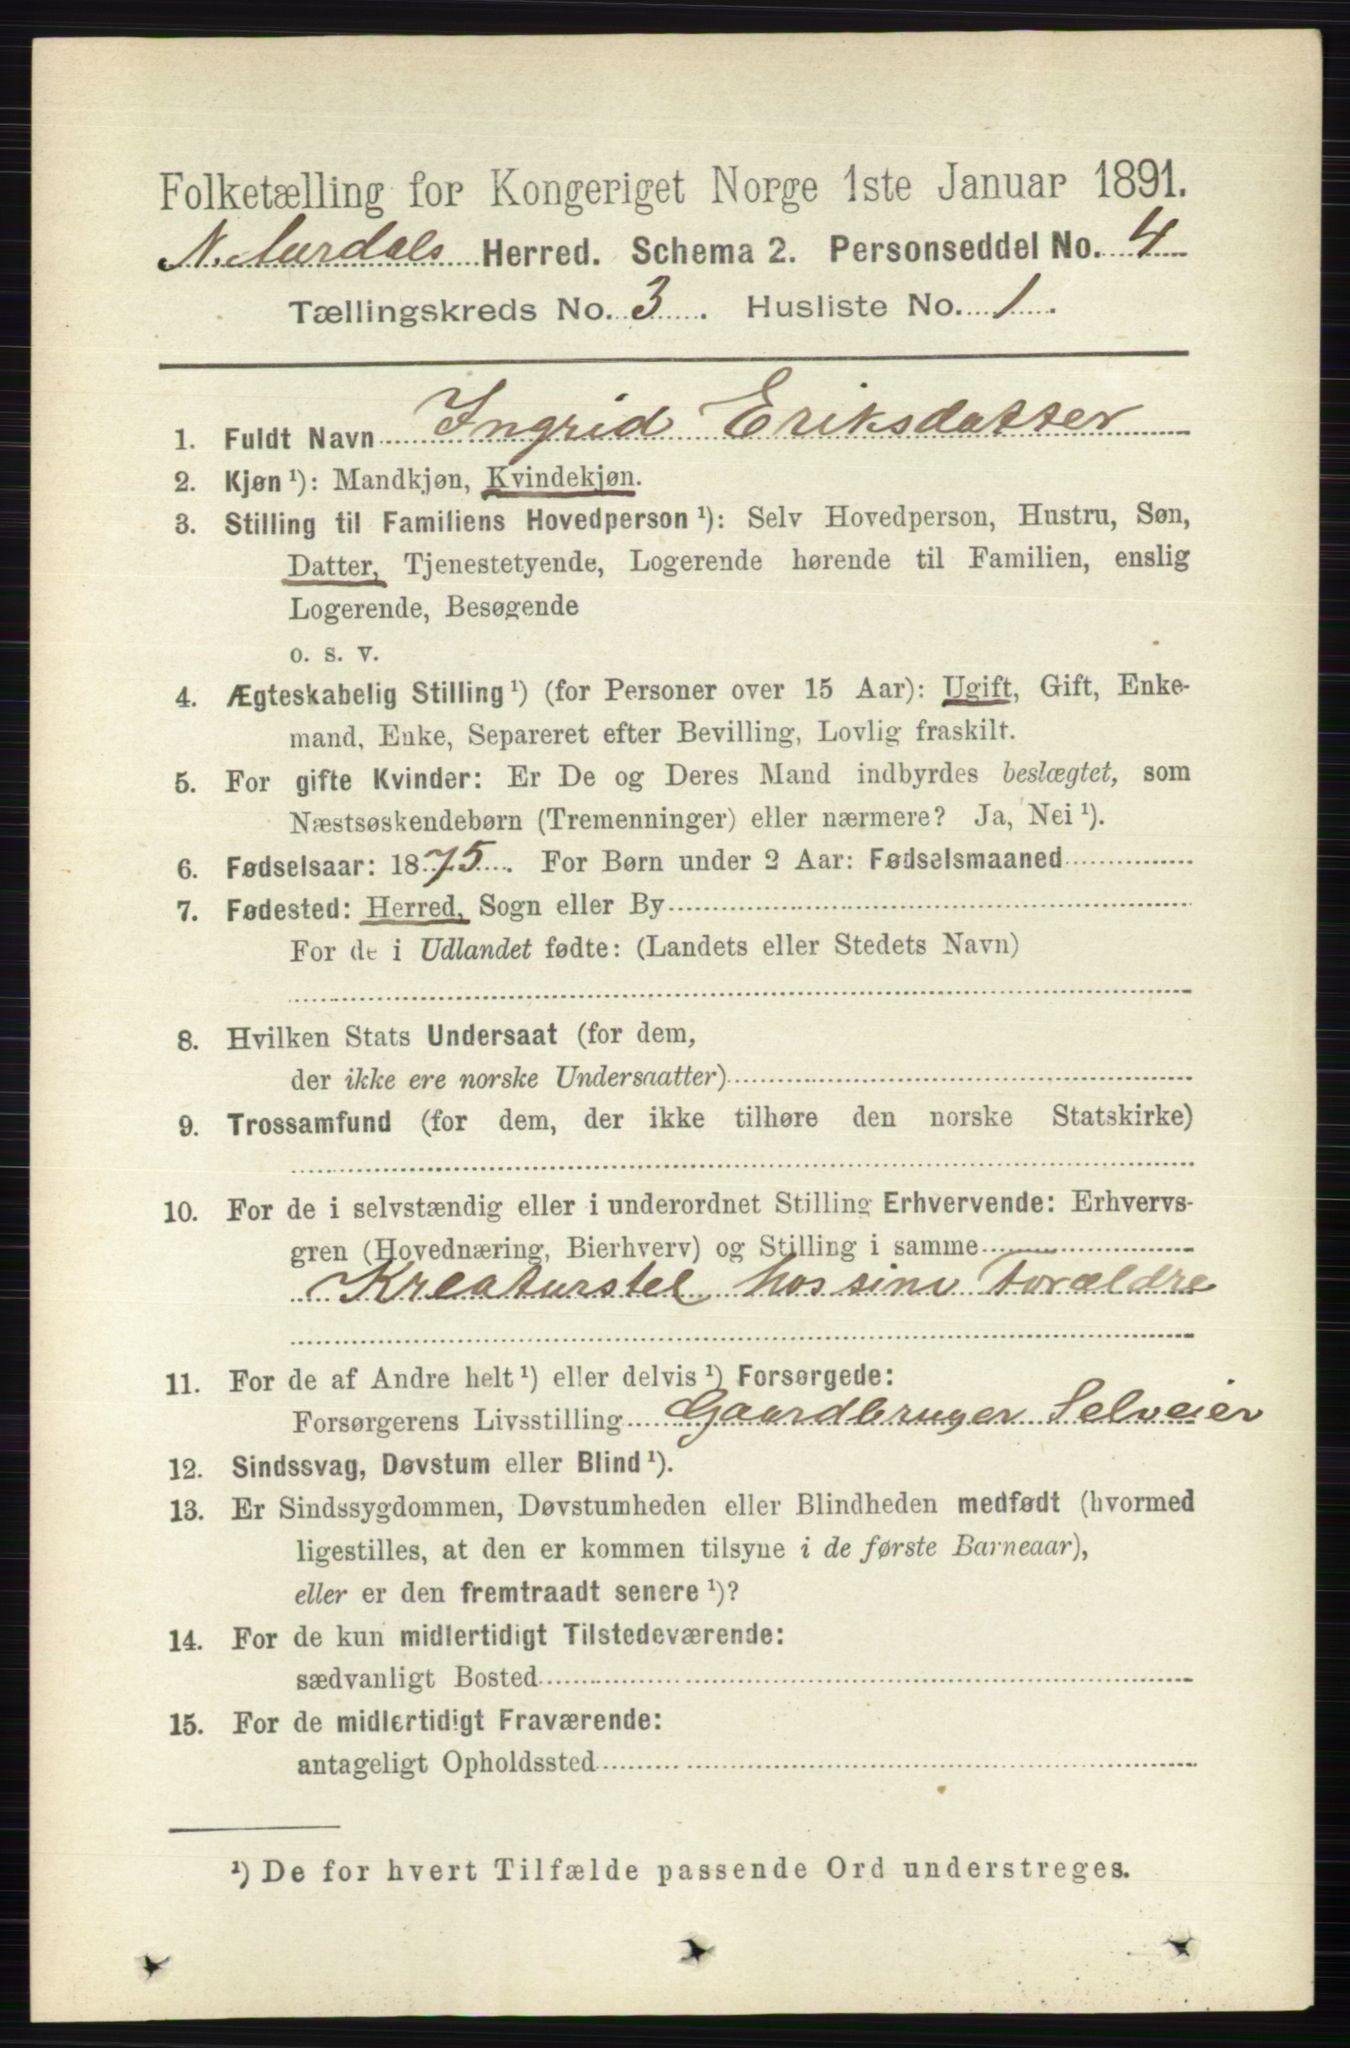 Folketælling for Kongeriget Norge 1ste Januar 1891.
N. Aurdals Herred. Schema 2. Personseddel No. 4
Tællingskreds No. 3. Husliste No. 1.
1. Fuldt Navn Ingrid Eriksdatter
2. Kjøn ¹): Mandkjøn, Kvindekjøn.
3. Stilling til Familiens Hovedperson ¹): Selv Hovedperson, Hustru, Søn,
Datter, Tjenestetyende, Logerende hørende til Familien, enslig
Logerende, Besøgende
o. s. v.
4. Ægteskabelig Stilling ¹) (for Personer over 15 Aar): Ugift, Gift, Enke-
mand, Enke, Separeret efter Bevilling, Lovlig fraskilt.
5. For gifte Kvinder: Er De og Deres Mand indbyrdes beslægtet, som
Næstsøskendebørn (Tremenninger) eller nærmere? Ja, Nei ¹).
6. Fødselsaar: 1875. For Børn under 2 Aar: Fødselsmaaned
7. Fødested: Herred, Sogn eller By
For de i Udlandet fødte: (Landets eller Stedets Navn)
8. Hvilken Stats Undersaat (for dem,
der ikke ere norske Undersaatter)
9. Trossamfund (for dem, der ikke tilhøre den norske Statskirke)
10. For de i selvstændig eller i underordnet Stilling Erhvervende: Erhvervs-
gren (Hovednæring, Bierhverv) og Stilling i samme
Kreaturstel hos sine Forældre
11. For de af Andre helt ¹) eller delvis ¹) Forsørgede:
Forsørgerens Livsstilling Gaardbruger Selveier
12. Sindssvag, Døvstum eller Blind ¹).
13. Er Sindssygdommen, Døvstumheden eller Blindheden medfødt (hvormed
ligestilles, at den er kommen tilsyne i de første Barneaar),
eller er den fremtraadt senere ¹)?
14. For de kun midlertidigt Tilstedeværende:
sædvanligt Bosted
15. For de midlertidigt Fraværende:
antageligt Opholdssted
¹) De for hvert Tilfælde passende Ord understreges.